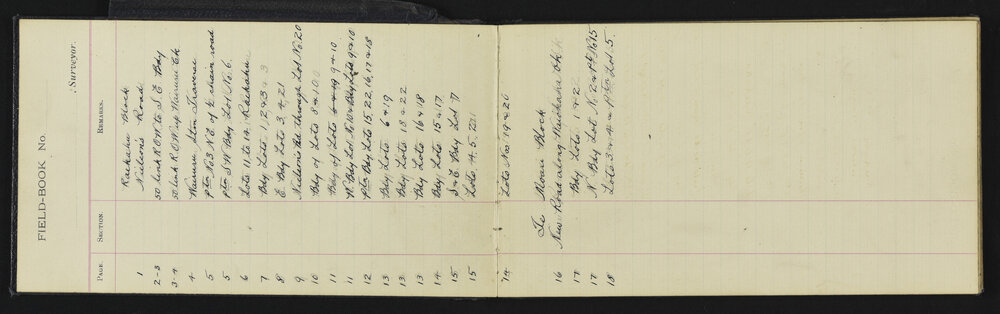 FIELD-BOOK No.
Surveyor.
PAGE. SECTION. REMARKS.
Rakahu Block
1 Neilson's Road
2-3 50 link R.O.W to S.E. Bdy
3-4 50 link R.O.W up Wairuru Ck
4 Wairuru Stm Traverse
5 ptn No3 N.E. of ½ chain road
5 ptn S.W Bdy Lot No 6.
6 Lots 11 to 14
7 Bdy Lots 1, 2 & 3
8 E Bdy Lots 3, 4, 21
9 Neilson's Rd through Lot No. 20
10 Bdy of Lots 8 & 10
11 Bdy of Lots 9 & 10
11 W Bdy Lot No 10 & Bdy Lots 9 & 10
12 ptn Bdy Lots 15, 22, 16, 17 & 18
13 Bdy Lots 6 & 19
13 Bdy Lots 18 & 22
13 Bdy Lots 16 & 18
14 Bdy Lots 15 & 17
15 S & E Bdy Lot 17
15 Lots 4, 5, 221
14 Lots Nos 19 & 20
Te Moari Block
16 New Road along Ck
17 Bdy Lots 1 & 2
17 N Bdy Lot No 2 & Pt No 15
18 Lots 3 & 4 & Pt Lot 5.